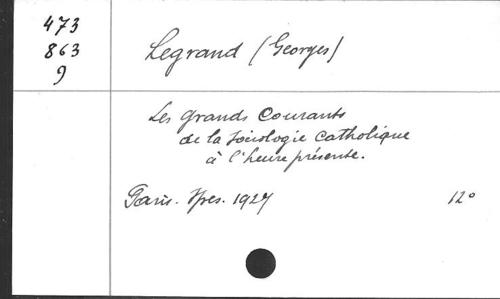 473
863
9
Legrand (Georges)
Les Grands Courants
de la Sociologie Catholique
à l'heure présente.
Paris. Spes. 1927
12°